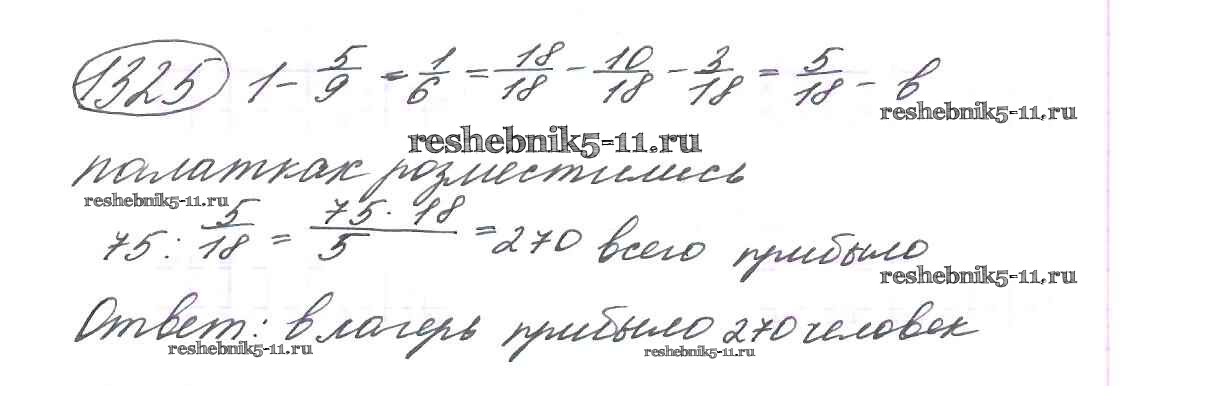 1325 1 - 5/9 - 1/6 = 18/18 - 10/18 - 3/18 = 5/18 - в
reshebnik5-11.ru
reshebnik5-11.ru
палатках розместились
reshebnik5-11.ru
75 : 5/18 = 75 · 18/5 = 270 всего прибыло
reshebnik5-11.ru
Ответ: в лагерь прибыло 270 человек
reshebnik5-11.ru reshebnik5-11.ru